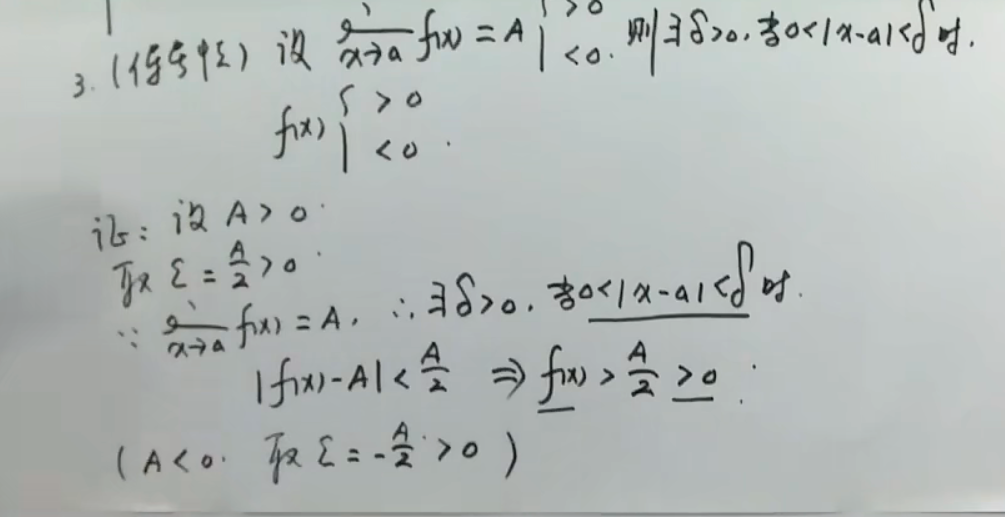 3. (保号性) 设 lim x→a f(x) = A { >0 <0. 则∃δ>0. 当0<|x-a|<δ时.
f(x) { >0 <0.
证: 设 A>0.
取 ε = A/2 >0.
∵ lim x→a f(x) = A. ∴ ∃δ>0. 当0<|x-a|<δ时.
|f(x)-A| < A/2 ⇒ f(x) > A/2 >0.
(A<0. 取 ε = -A/2 >0)